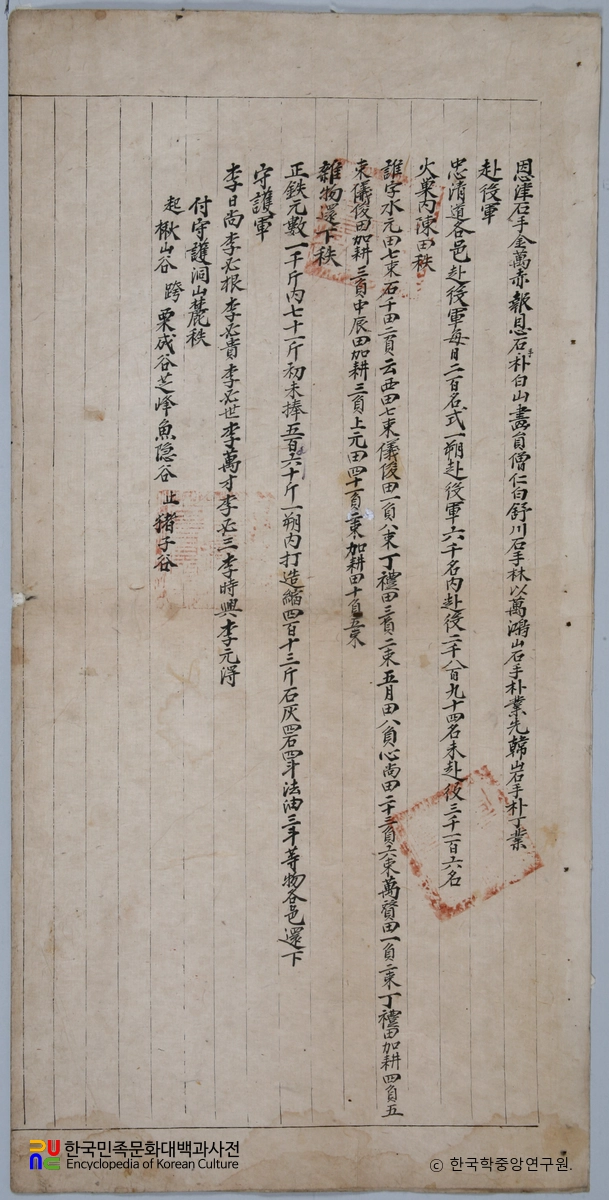 恩津石手金萬赤報恩石手朴白山畵員僧仁白舒川石手林以萬鴻山石手朴業先韓山石手朴丁業
赴役軍
忠清道各邑赴役軍每日二百名式一朔赴役軍六千名內赴役二千八百九十四名未赴役三千一百六名
火巢內陳田秩
誰字水元田七束石千田二負云西田七束儀俊田一負八束丁禮田三負二束五月田八負心尚田二十三負六束萬贇田一負二束丁禮田加耕四負五
束儀俊田加耕三負中辰田加耕三負上元田四十一負二束加耕田十負五束
雜物還下秩
正鉄元數一千斤內七十一斤初未捧五百六十斤一朔內打造縮四百十三斤石灰四石四斗法油三斗等物各邑還下
守護軍
李日尚李必根李必貴李必世李萬才李必三李時興李元得
付守護洞山麓秩
起楸山谷 跨栗成谷芝峰魚隱谷 止猪子谷
한국민족문화대백과사전
Encyclopedia of Korean Culture
© 한국학중앙연구원.